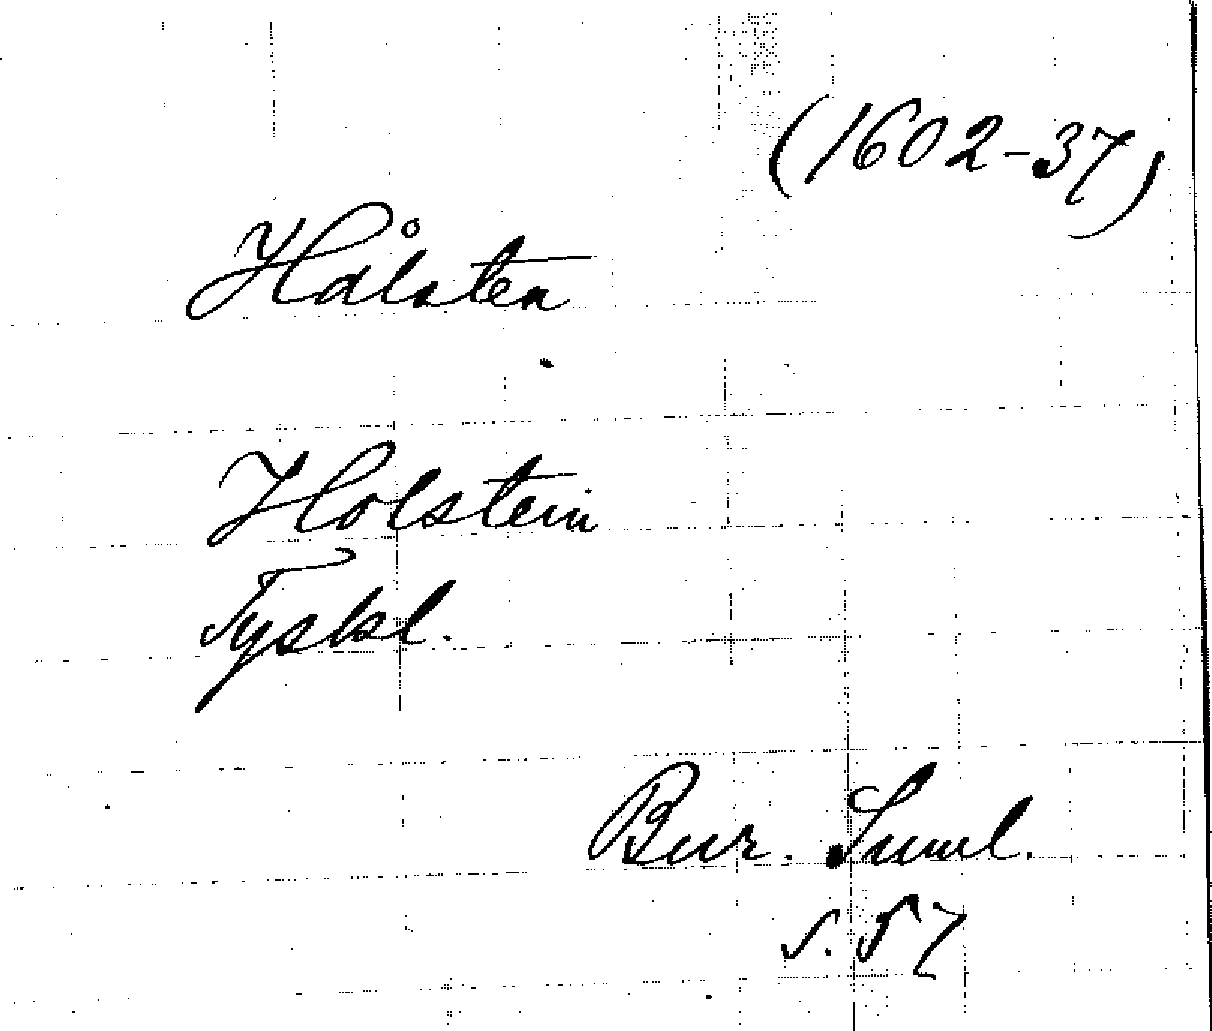 (1602-37)
Hålsten
Holstein
Tyskl.
Bur. Suml.
s. 57